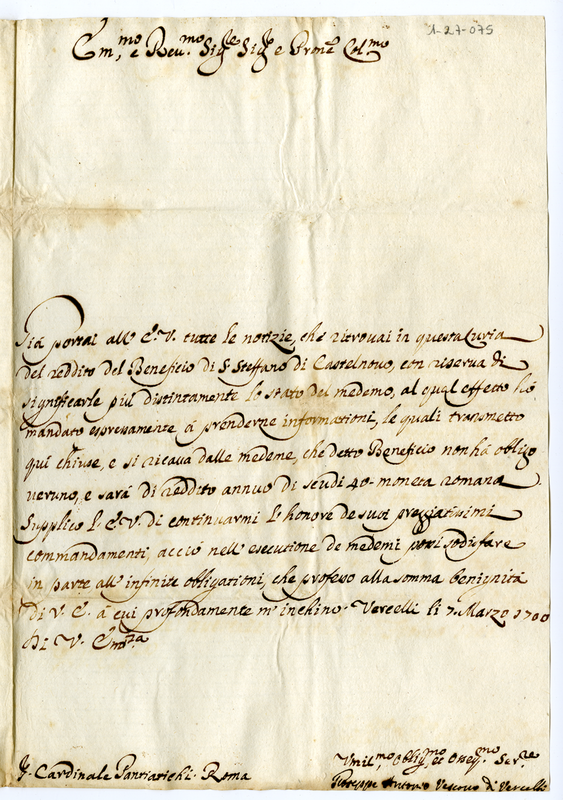 1-27-075
Em.mo e Rev.mo Sig.re Sig.re e Pron.e Col.mo
Già portai all' E. V. tutte le notizie, che ritrovai in questa Curia
del reddito del Beneficio di S. Steffano di Castelnovo, con riserva di
significarle più distintamente lo stato del medemo, al qual effetto hò
mandato espressamente à prenderne informationi, le quali transmetto
quì chiuse, e si ricava dalle medeme, che detto Beneficio non hà obligo
veruno, e sarà di reddito annuo di scudi 40 - moneta romana
Supplico l' E. V. di continuarmi l' honore de suoi preggiatissimi
commandamenti, acciò nell' esecutione de medemi possi sodisfare
in parte all' infinite obligationi, che professo alla somma benignità
Di V. E. à cui profondamente m' inchino. Vercelli li 7. Marzo 1700
Di V. Em.za
S.r Cardinale Panciatichi. Roma
Vmil.mo Oblig.mo et Osseq.mo Ser.re
Giuseppe Antonio Vescovo di Vercelli